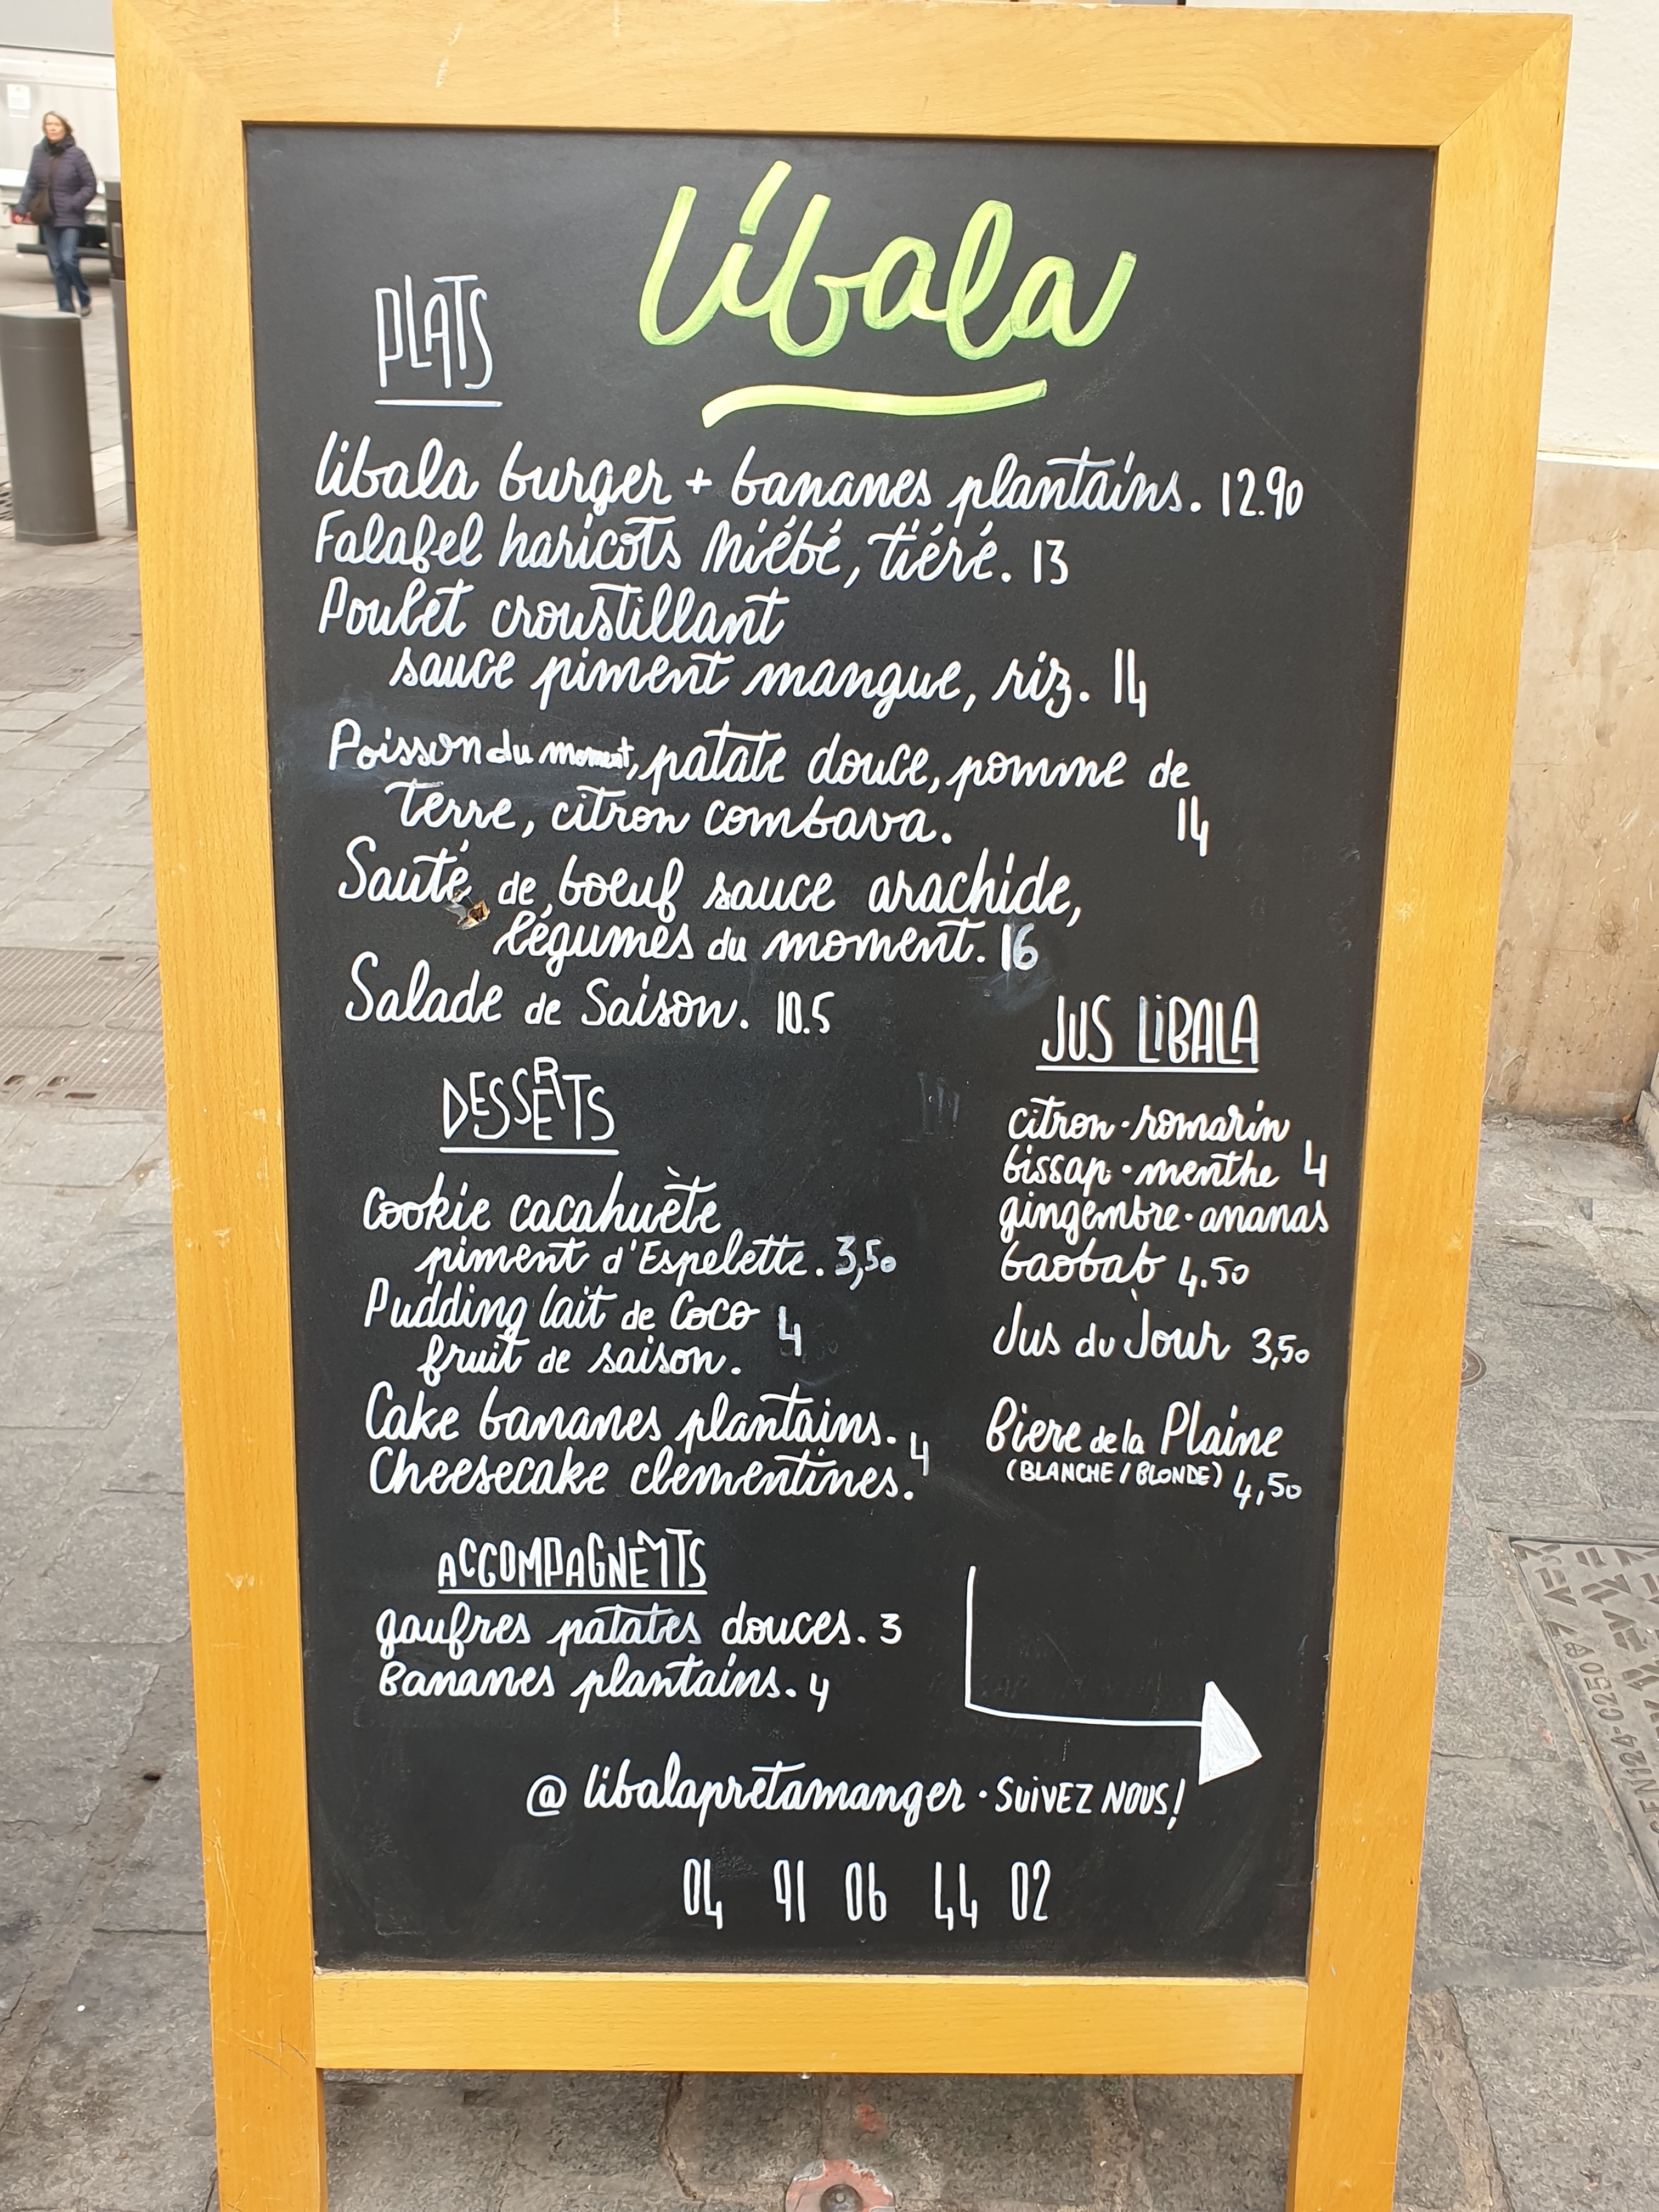 Libala
PLATS
libala burger + bananes plantains. 12.90
Falafel haricots Niébé, tiéré. 13
Poulet croustillant
sauce piment mangue, riz. 14
Poisson du moment, patate douce, pomme de
terre, citron combava. 14
Sauté de boeuf sauce arachide,
légumes du moment. 16
Salade de Saison. 10.5
DESSERTS
cookie cacahuète
piment d'Espelette. 3,50
Pudding lait de Coco 4
fruit de saison.
Cake bananes plantains. 4
Cheesecake clementines.
ACCOMPAGNEMTS
gaufres patates douces. 3
Bananes plantains. 4
JUS LiBALA
citron · romarin
bissap · menthe 4
gingembre · ananas
baobab 4.50
Jus du Jour 3,50
Biere de la Plaine
(BLANCHE / BLONDE) 4,50
@ libalapretamanger · SUIVEZ NOUS!
04 91 06 44 02